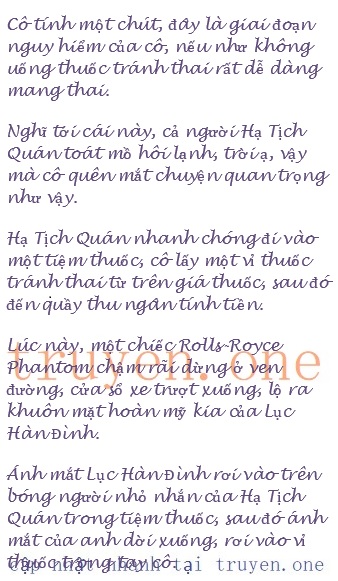 Cô tính một chút, đây là giai đoạn
nguy hiểm của cô, nếu như không
uống thuốc tránh thai rất dễ dàng
mang thai.
Nghĩ tới cái này, cả người Hạ Tịch
Quán toát mồ hôi lạnh, trời ạ, vậy
mà cô quên mất chuyện quan trọng
như vậy.
Hạ Tịch Quán nhanh chóng đi vào
một tiệm thuốc, cô lấy một vỉ thuốc
tránh thai từ trên giá thuốc, sau đó
đến quầy thu ngân tính tiền.
Lúc này, một chiếc Rolls-Royce
Phantom chậm rãi dừng ở ven
đường, cửa sổ xe trượt xuống, lộ ra
khuôn mặt hoàn mỹ kia của Lục
Hàn Đình.
truyen.one
Ánh mắt Lục Hàn Đình rơi vào trên
bóng người nhỏ nhắn của Hạ Tịch
Quán trong tiệm thuốc, sau đó ánh
mắt của anh dời xuống, rơi vào vỉ
thuốc trong tay cô.
cập nhật nhanh tại truyen.one